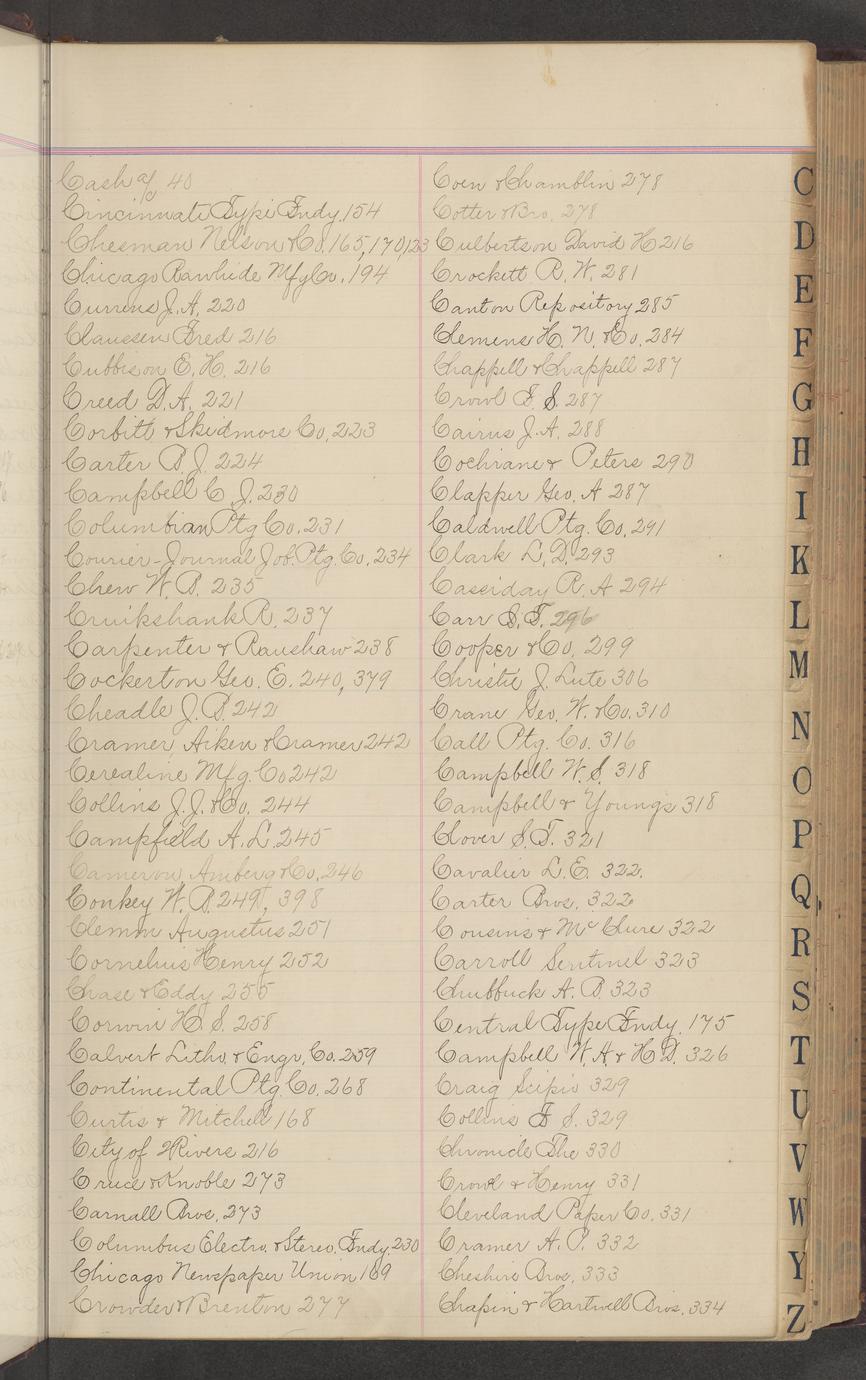 Cash a/c 40
Cincinnati Type Fndy, 154
Chesman Nelson & Co. 165, 170, 123
Chicago Rawhide Mfg Co. 194
Currens J. A. 220
Claussen Fred 216
Cubbison E. H. 216
Creed D. A. 221
Corbitt & Skidmore Co, 223
Carter B. J. 224
Campbell C. J. 230
Columbian Ptg Co. 231
Courier-Journal Job. Ptg. Co, 234
Chew W. B. 235
Cruikshank R. 237
Carpenter & Ranshaw 238
Cockerton Geo. E. 240, 379
Cheadle J. B. 242
Cramer Aiken & Cramer 242
Cerealine Mfg. Co 242
Collins J. J. & Co. 244
Campfield A. L. 245
Cameron, Amberg & Co, 246
Conkey W. B. 249, 398
Clemm Augustus 251
Cornelius Henry 252
Chase & Eddy 255
Corwin H. S. 258
Calvert Litho. & Engr. Co. 259
Continental Ptg. Co. 268
Curtis & Mitchell 168
City of 2Rivers 216
Cruce & Knoble 273
Carnall Bros, 273
Columbus Electro. & Stereo. Fndy, 230
Chicago Newspaper Union 169
Crowder & Brenton 277
Coen & Chamblin 278
Cotter & Bro, 278
Culbertson David H 216
Crockett R. W. 281
Canton Repository 285
Clemens H. N. & Co, 284
Chappell & Chappell 287
Crowl F. S. 287
Cairns J. A. 288
Cochrane & Peters 290
Clapper Geo. A 287
Caldwell Ptg. Co, 291
Clark L. D. 293
Cassiday R. A 294
Carr S. T. 296
Cooper & Co, 299
Christie J. Lute 306
Crane Geo. W. & Co. 310
Call Ptg. Co. 316
Campbell W. S. 318
Campbell & Youngs 318
Clover S. T. 321
Cavalier L. E. 322.
Carter Bros. 322
Cousins & McClure 322
Carroll Sentinel 323
Chubbuck A. B. 323
Central Type Fndy. 175
Campbell W. A & H D. 326
Craig Scipio 329
Collins F S. 329
Chronicle The 330
Crowl & Henry 331
Cleveland Paper Co, 331
Cramer A. P. 332
Cheshire Bros, 333
Chapin & Hartwell Bros. 334
C
D
E
F
G
H
I
K
L
M
N
O
P
Q
R
S
T
U
V
W
Y
Z